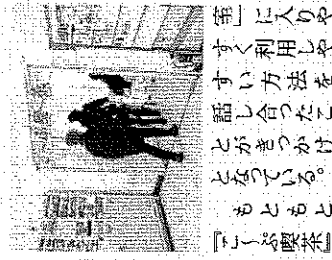 」に入りや
すく利用しや
すい方法を
話し合ったこ
とがきっかけ
となっている。
もともと
『こ〜ぷ喫茶